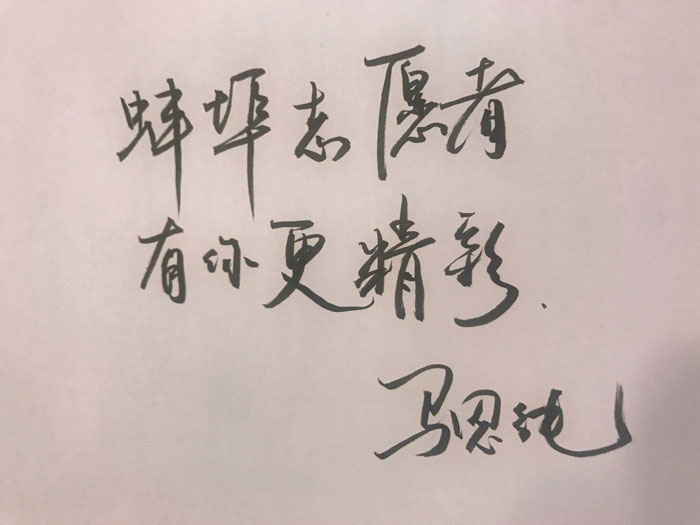 蚌埠志愿者
有你更精彩.
马思纯